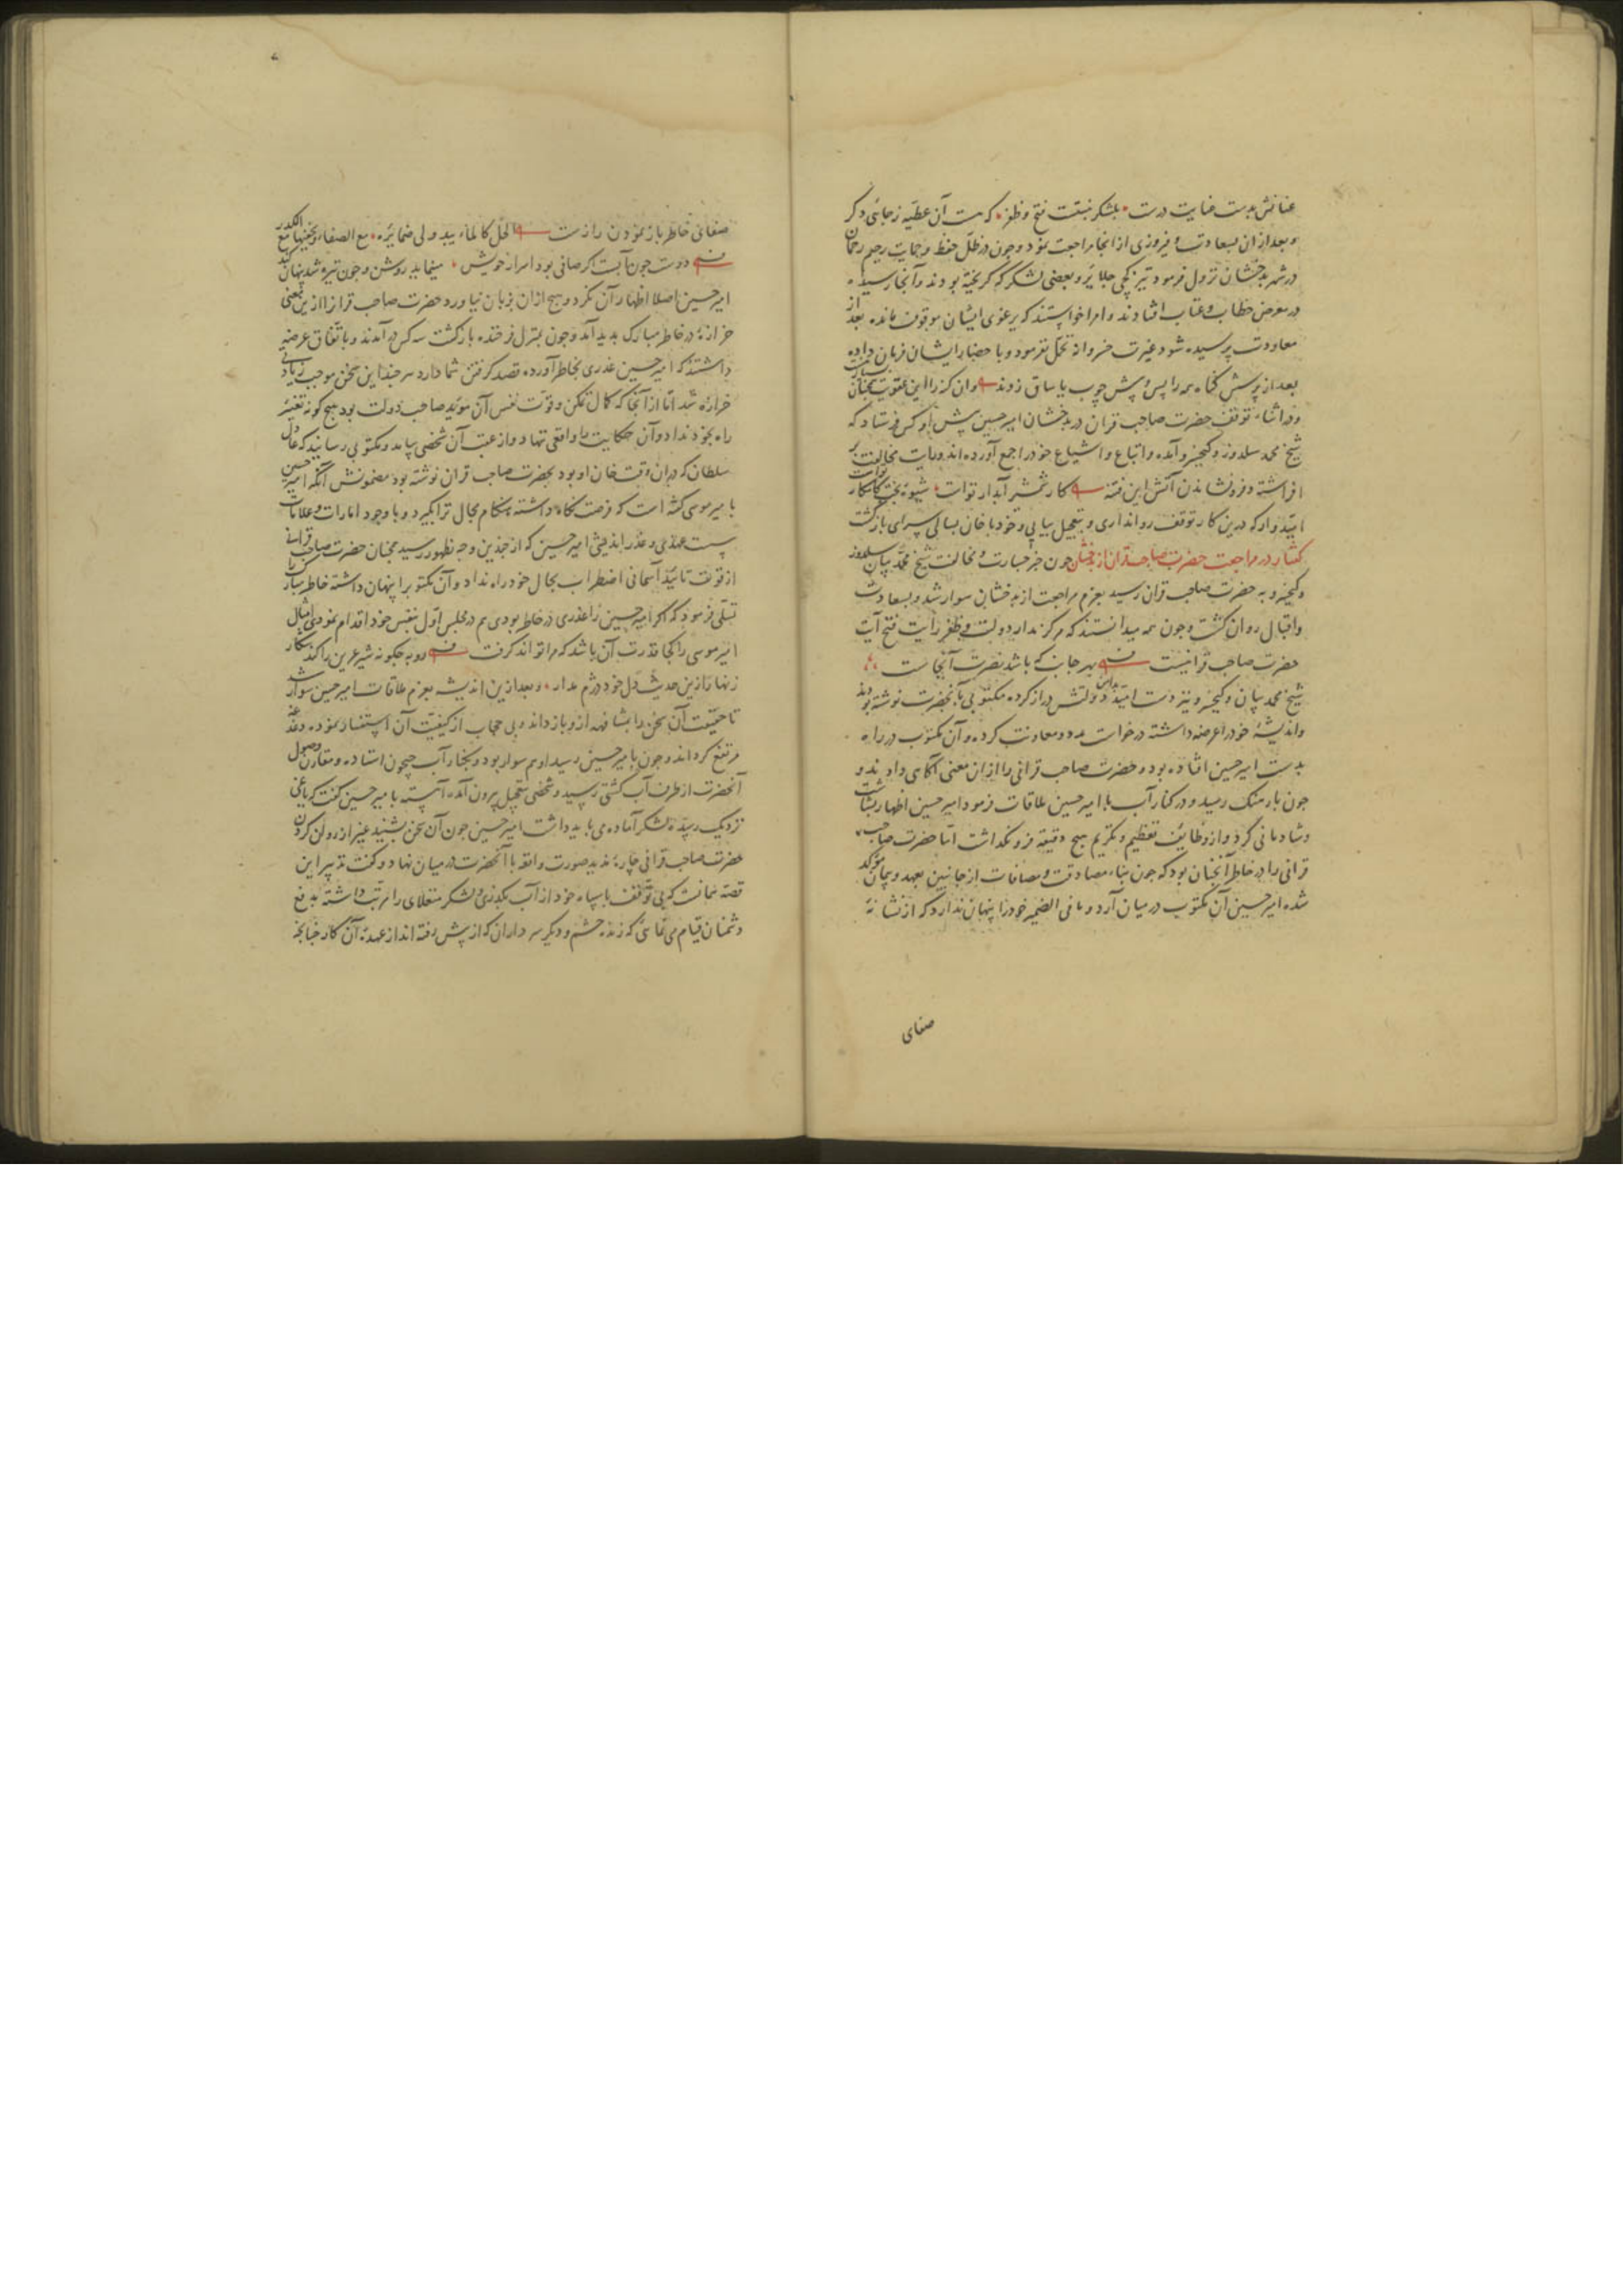 عنانش بدست عنایت درست بلشکر نبشت فتح و ظفر که هست آن عطیه ز جائی دکر
و بعد از ان بسعادت و فیروزی از انجا مراجعت نمود و چون در ظل حفظ و حمایت رحیم رحمان
در شهر بدخشان نزول فرمود تیزکچی جلایر و بعضی لشکر که کریخته بودند و آنجا رسیده
در معرض خطاب و عتاب افتادند و امرا خواستند که یرغوی ایشان موقوف مانده بعد از
معاودت پرسیده شود غیرت خسروانه تحمل نفرمود و باحضار ایشان فرمان داده
بعد از پرسش کناه همه را پس و پیش چوب یاساق زدند وان کنه را این عقوبت
و در اثناء توقف حضرت صاحب قران در بدخشان امیر حسین پیش او کس فرستاد که
شیخ محمد سلدوز و کیخسرو آمده و اتباع و اشیاع خود را جمع آورده اند و رایت مخالفت بر
افراشته و فرونشاندن آتش این فتنه کار شمشیر آبدار توات شیوه بخت کامکار توات
امیدوار که درین کار توقف روا نداری و بتعجیل بیایی و خود با خان بسالی سرای بازگشت
کفتار در مراجعت حضرت صاحب قران از بدخشان چون خبر جسارت و مخالفت شیخ محمد بیان سلدوز
و کیخسرو به حضرت صاحب قران رسید بعزم مراجعت از بدخشان سوار شد و بسعادت
و اقبال روان کشت و چون همه میدانستند که مرکز مدار دولت و ظفر رایت فتح آیت
حضرت صاحب قرانیست بهر جانب که باشد نصرت آنجاست
شیخ محمد بیان و کیخسرو نیز دست امید بدامن دولتش دراز کرده مکتوبی بآنحضرت نوشته بودند
و اندیشهٔ خود را عرضه داشته درخواست مدد و معاونت کرده و آن مکتوب در راه
بدست امیر حسین افتاده بود و حضرت صاحب قرانی را از ان معنی آگاهی دادند و
چون بارهنک رسید و در کنار آب با امیر حسین ملاقات فرمود امیر حسین اظهار بشاشت
و شادمانی کرد و از وظایف تعظیم و تکریم هیچ دقیقه فرو نکذاشت اما حضرت صاحب
قرانی را در خاطر آنچنان بود که چون بناء مصادقت و مصافات از جانبین بعهد و پیمان مؤکد
شده امیر حسین آن مکتوب در میان آرد و مافی الضمیر خود را پنهان ندارد که از نشانهٔ
صفای
صفای خاطر باز نمودن رازست الخل کالماء یبدی لی ضمایره مع الصفاء و یخفیها مع الکدر
دوست چون آبست اکر صافی بود اسرار خویش مینماید روشن و چون تیره شد پنهان کند
امیر حسین اصلا اظهار آن نکرد و هیچ از ان بزبان نیاورد حضرت صاحب قرانرا ازین معنی
حزازهٔ در خاطر مبارک پدید آمد و چون بمنزل فرخنده بازکشت سه کس درآمدند و باتفاق عرضه
داشتند که امیر حسین غدری بخاطر آورده قصد کرفتن شما دارد هر چند این سخن موجب زیادتی
حزازه شد اما از آنجا که کمال تمکن و قوت نفس آن مؤید صاحب دولت بود هیچ کونه تغیر
راه بخود نداد و آن حکایت را واقعی ننهاد و از عقب آن شخصی بیامد و مکتوبی رسانید که عادل
سلطان که دران وقت خان او بود بحضرت صاحب قران نوشته بود مضمونش آنکه امیر حسین
با میر موسی کفته است که فرصت نکاه داشته هنکام مجال ترا بکیرد و با وجود امارات و علامات
سست عهدی و غدر اندیشی امیر حسین که از چندین وجه بظهور رسید همچنان حضرت صاحب قرانی
از قوت تایید آسمانی اضطراب بحال خود راه نداد و آن مکتوب را پنهان داشته خاطر مبارک را
تسلی فرمود که اکر امیر حسین را غدری در خاطر بودی هم در مجلس اول بنفس خود اقدام نمودی امثال
امیر موسی را کجا قدرت آن باشد که مرا تواند کرفت روبه چکونه شیر عرین را کند شکار
زنهار ازین حدیث دل خود دژم مدار و بعد ازین اندیشه بعزم ملاقات امیر حسین سوار شد
تا حقیقت آن سخن را بمشافهه ازو باز داند و بی حجاب از کیفیت آن استفسار نموده دغدغه
مرتفع کرداند و چون بامیر حسین رسید او هم سوار بود و بکنار آب جیحون استاده و مقارن وصول
آنحضرت از طرف آب کشتی رسید و شخصی بتعجیل بیرون آمد و آهسته بامیر حسین کفت که یاغی
نزدیک رسید لشکر آماده می باید داشت امیر حسین چون آن سخن بشنید غیر از روان کردن
حضرت صاحب قرانی چارهٔ ندید صورت واقعه با آنحضرت در میان نهاد و کفت تدبیر این
قصه همانست که بی توقف با سپاه خود از آب بکذری و لشکر منغلای را مرتب داشته بدفع
دشمنان قیام می نمائی که زنده حشم و دیکر سرداران که از پیش رفته اند از عهدهٔ آن کار چنانچه